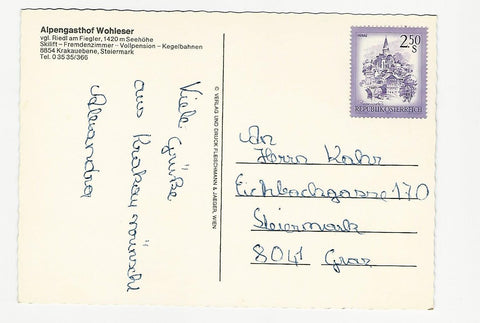 Alpengasthof Wohleser
vgl. Riedl am Fiegler, 1420 m Seehöhe
Skilift – Fremdenzimmer – Vollpension – Kegelbahnen
8854 Krakauebene, Steiermark
Tel. 0 35 35/366
Viele Grüße
aus Krakau wünscht
Alexandra
© VERLAG UND DRUCK FLEISCHMANN & JAEGER, WIEN
2.50
S
REPUBLIK ÖSTERREICH
An
Herrn Kahr
Eichbachgasse 170
Steiermark
8041 Graz